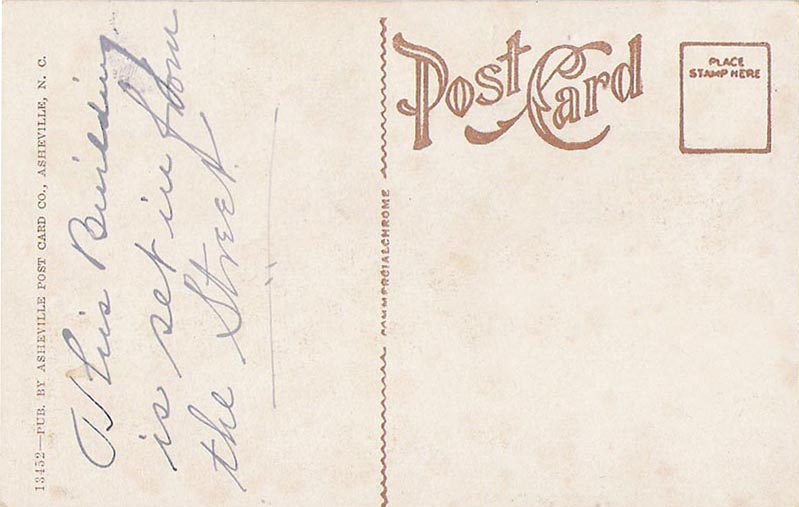 13452—PUB. BY ASHEVILLE POST CARD CO., ASHEVILLE, N. C.
This Building
is set in from
the Street
COMMERCIALCHROME
Post Card
PLACE
STAMP HERE